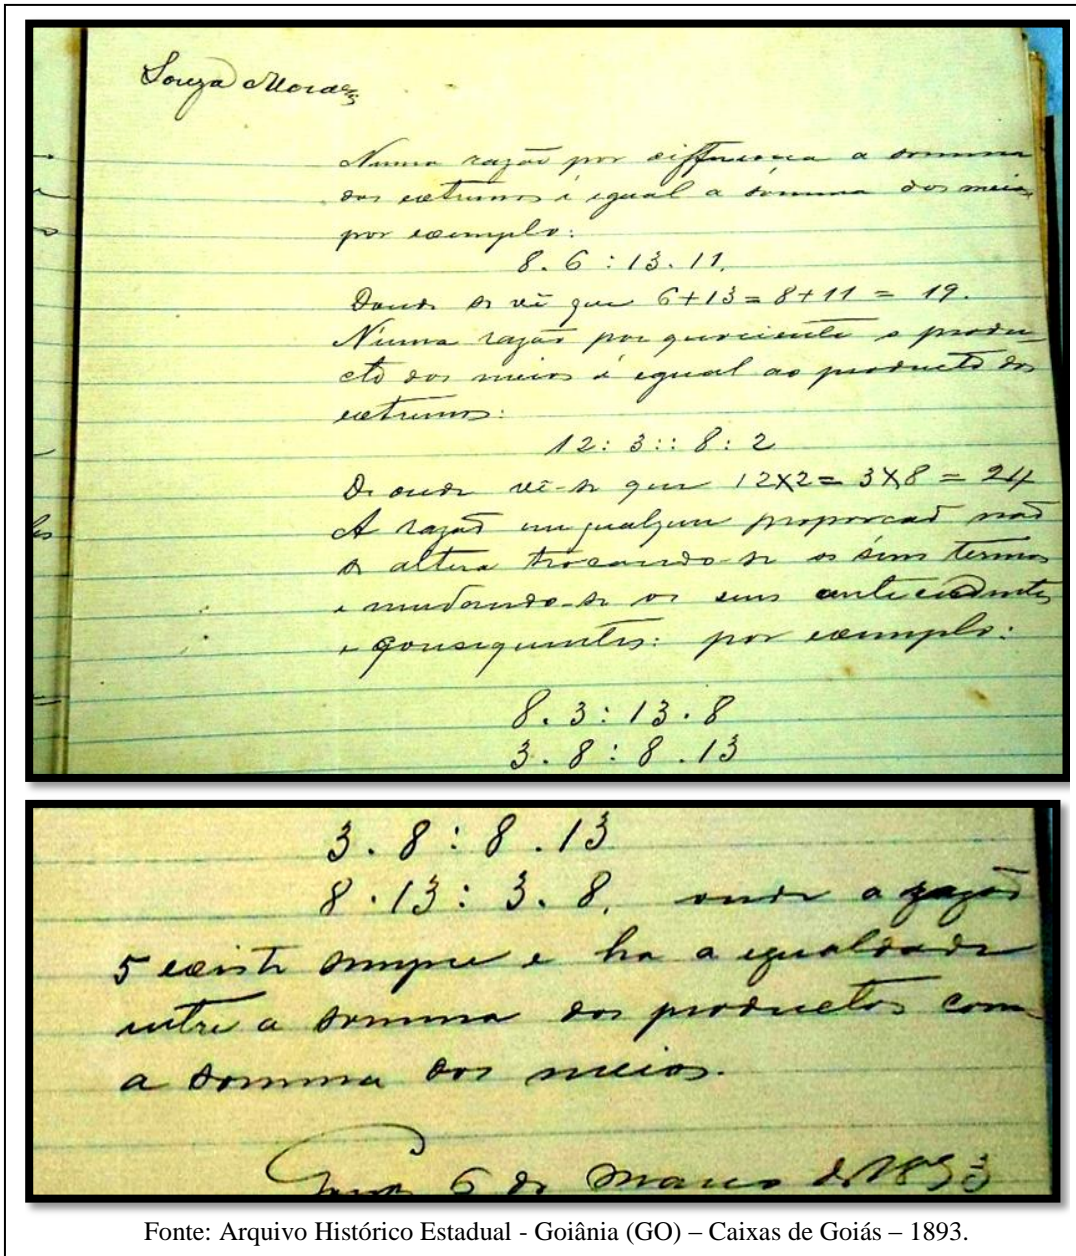 Souza Moraes
Numa razão por differença a somma
dos extremos é egual a somma dos meios
por exemplo:
8. 6 : 13. 11.
Donde se vê que 6+13 = 8+11 = 19.
Numa razão por quociente o produ-
cto dos meios é egual ao producto dos
extremos:
12 : 3 :: 8 : 2
De onde vê-se que 12X2 = 3X8 = 24
A razão em qualquer proporcaõ não
se altera trocando-se os seus termos
e mudando-se os seus antecedentes
e consequentes: por exemplo:
8. 3 : 13. 8
3. 8 : 8. 13
3. 8 : 8. 13
8. 13 : 3. 8, onde a razão
5 existe sempre e ha a egualdade
entre a somma dos productos com
a somma dos meios.
6 de Março de 1893
Fonte: Arquivo Histórico Estadual - Goiânia (GO) – Caixas de Goiás – 1893.